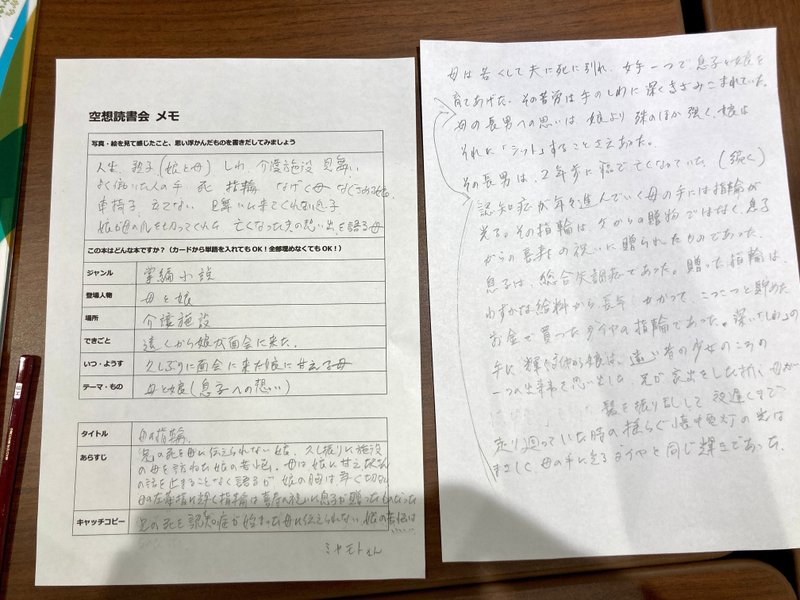 空想読書会 メモ
写真・絵を見て感じたこと、思い浮かんだものを書きだしてみましょう
人生 親子(娘と母) しわ 介護施設 見舞い
よく働いた人の手 死 指輪 なげく母 なぐさめる娘
車椅子 立てない 見舞いに来てくれない息子
娘が母の爪を切ってくれた 亡くなった夫の思い出を語る母
この本はどんな本ですか?(カードから単語を入れてもOK!全部埋めなくてもOK!)
ジャンル 掌編小説
登場人物 母と娘
場所 介護施設
できごと 遠くから娘が面会に来た。
いつ・ようす 久しぶりに面会に来た娘に甘える母
テーマ・もの 母と娘(息子への想い)
タイトル 母の指輪
あらすじ 兄の死を母に伝えられない娘。久し振りに施設
の母を訪ねた娘の苦悩。母は娘に甘え
の話を止まることなく語るが 娘の胸は 切ない
母の左薬指に輝く指輪は喜寿の祝いに息子が贈ったものだった
キャッチコピー 兄の死を認知症が始まった母に伝えられない娘の苦悩は……
ミヤモトさん
母は若くして夫に死に別れ、女手一つで息子と娘を
育てあげた。その苦労は手のしわに深くきざみこまれていた。
母の長男への思いは、娘より殊のほか強く、娘は
それに「シット」することさえあった。
その長男は、2年前に 亡くなっていた。
認知症が年々進んでいく母の手には指輪が
光る。その指輪は、夫からの贈物ではなく、息子
からの長寿の祝いに贈られたものであった。
息子は、総合失調症であった。贈った指輪は、
わずかな給料から長年かかって、こつこつと貯めた
お金で買ったダイヤの指輪であった。深い「しわ」の
手に輝く 娘は、遠い昔の少女のころの
一つの出来事を思い出した。兄が家出をした折、母が
髪を振り乱して夜遅くまで
走り廻っていた時の揺らぐ懐中電灯の光は
まさしく母の手に光るダイヤと同じ輝きであった。